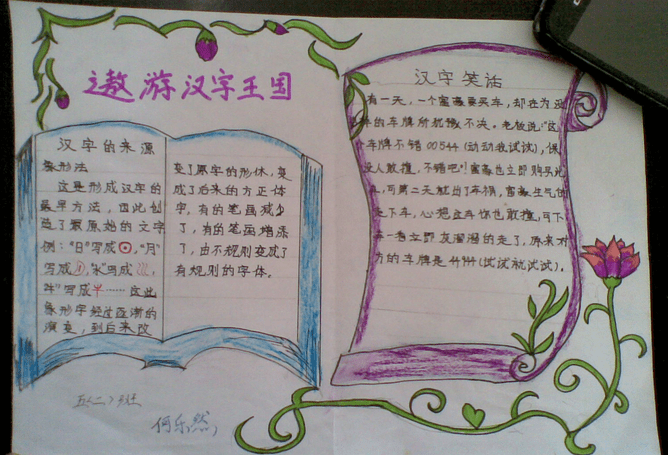 遨游汉字王国
汉字的来源
象形法
这是形成汉字的
最早方法，因此创
造了最原始的文字
例："日"写成，"月"
写成，"水"写成，
写成……这些
象形字经过逐渐的
演变，到后来改
变了原字的形体，变
成了后来的方正体
字。有的笔画减少
了，有的笔画增添
了，由不规则变成了
有规则的字体。
汉字笑话
有一天，一个富豪要买车，却在为
车的车牌所犹豫不决。老板说："这
车牌不错00544（动动我试试），保
没人敢撞，不错吧！富豪也立即购买
可第二天就出了车祸，富豪生气
走下车，心想这车你也敢撞，可下
车一看立即灰溜溜的走了，原来对
方的车牌是44944（试试就试试）。
五〈二〉班
何乐然